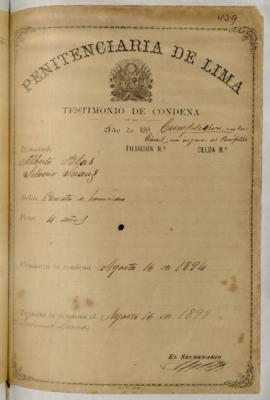 439
PENITENCIARIA DE LIMA
TESTIMONIO DE CONDENA
Año de 189
Cumplieron en la
Cárcel, no ingresó al Panóptico
FILIACION N.º CELDA N.º
Rematado
Alberto Blas
Silverio Suarez
Delito Conato de homicidio
Pena 4 años
Comienza la condena Agosto 16 de 1894
Termina la condena el Agosto 16 de 1898
EL SECRETARIO